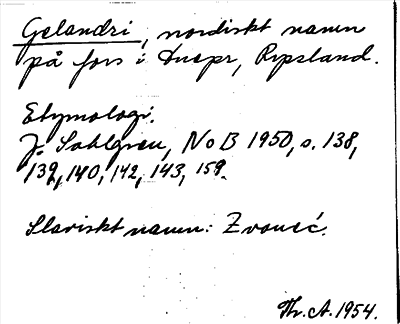 Gelandri, nordiskt namn
på fors i Dnepr, Ryssland.
Etymologi.
J. Sahlgren, NoB 1950, s. 138,
139, 140, 142, 143, 159.
Slaviskt namn: Zvoneć.
Th. A. 1954.